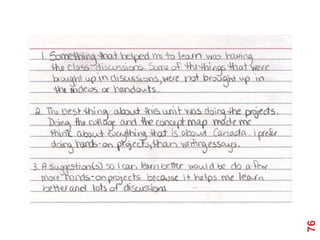 1. Something that helped me to learn was having
the class discussions. Some of the things that were
brought up in discussions, were not brought up in
the videos or handouts.
2. The best thing about this unit was doing the projects.
Doing the collage and the concept map made me
think about everything that is about Canada. I prefer
doing hands-on projects, than writing essays.
3. A suggestion(s) so I can learn better would be do a few
more hands-on projects because it helps me learn
better and lots of discussions
76